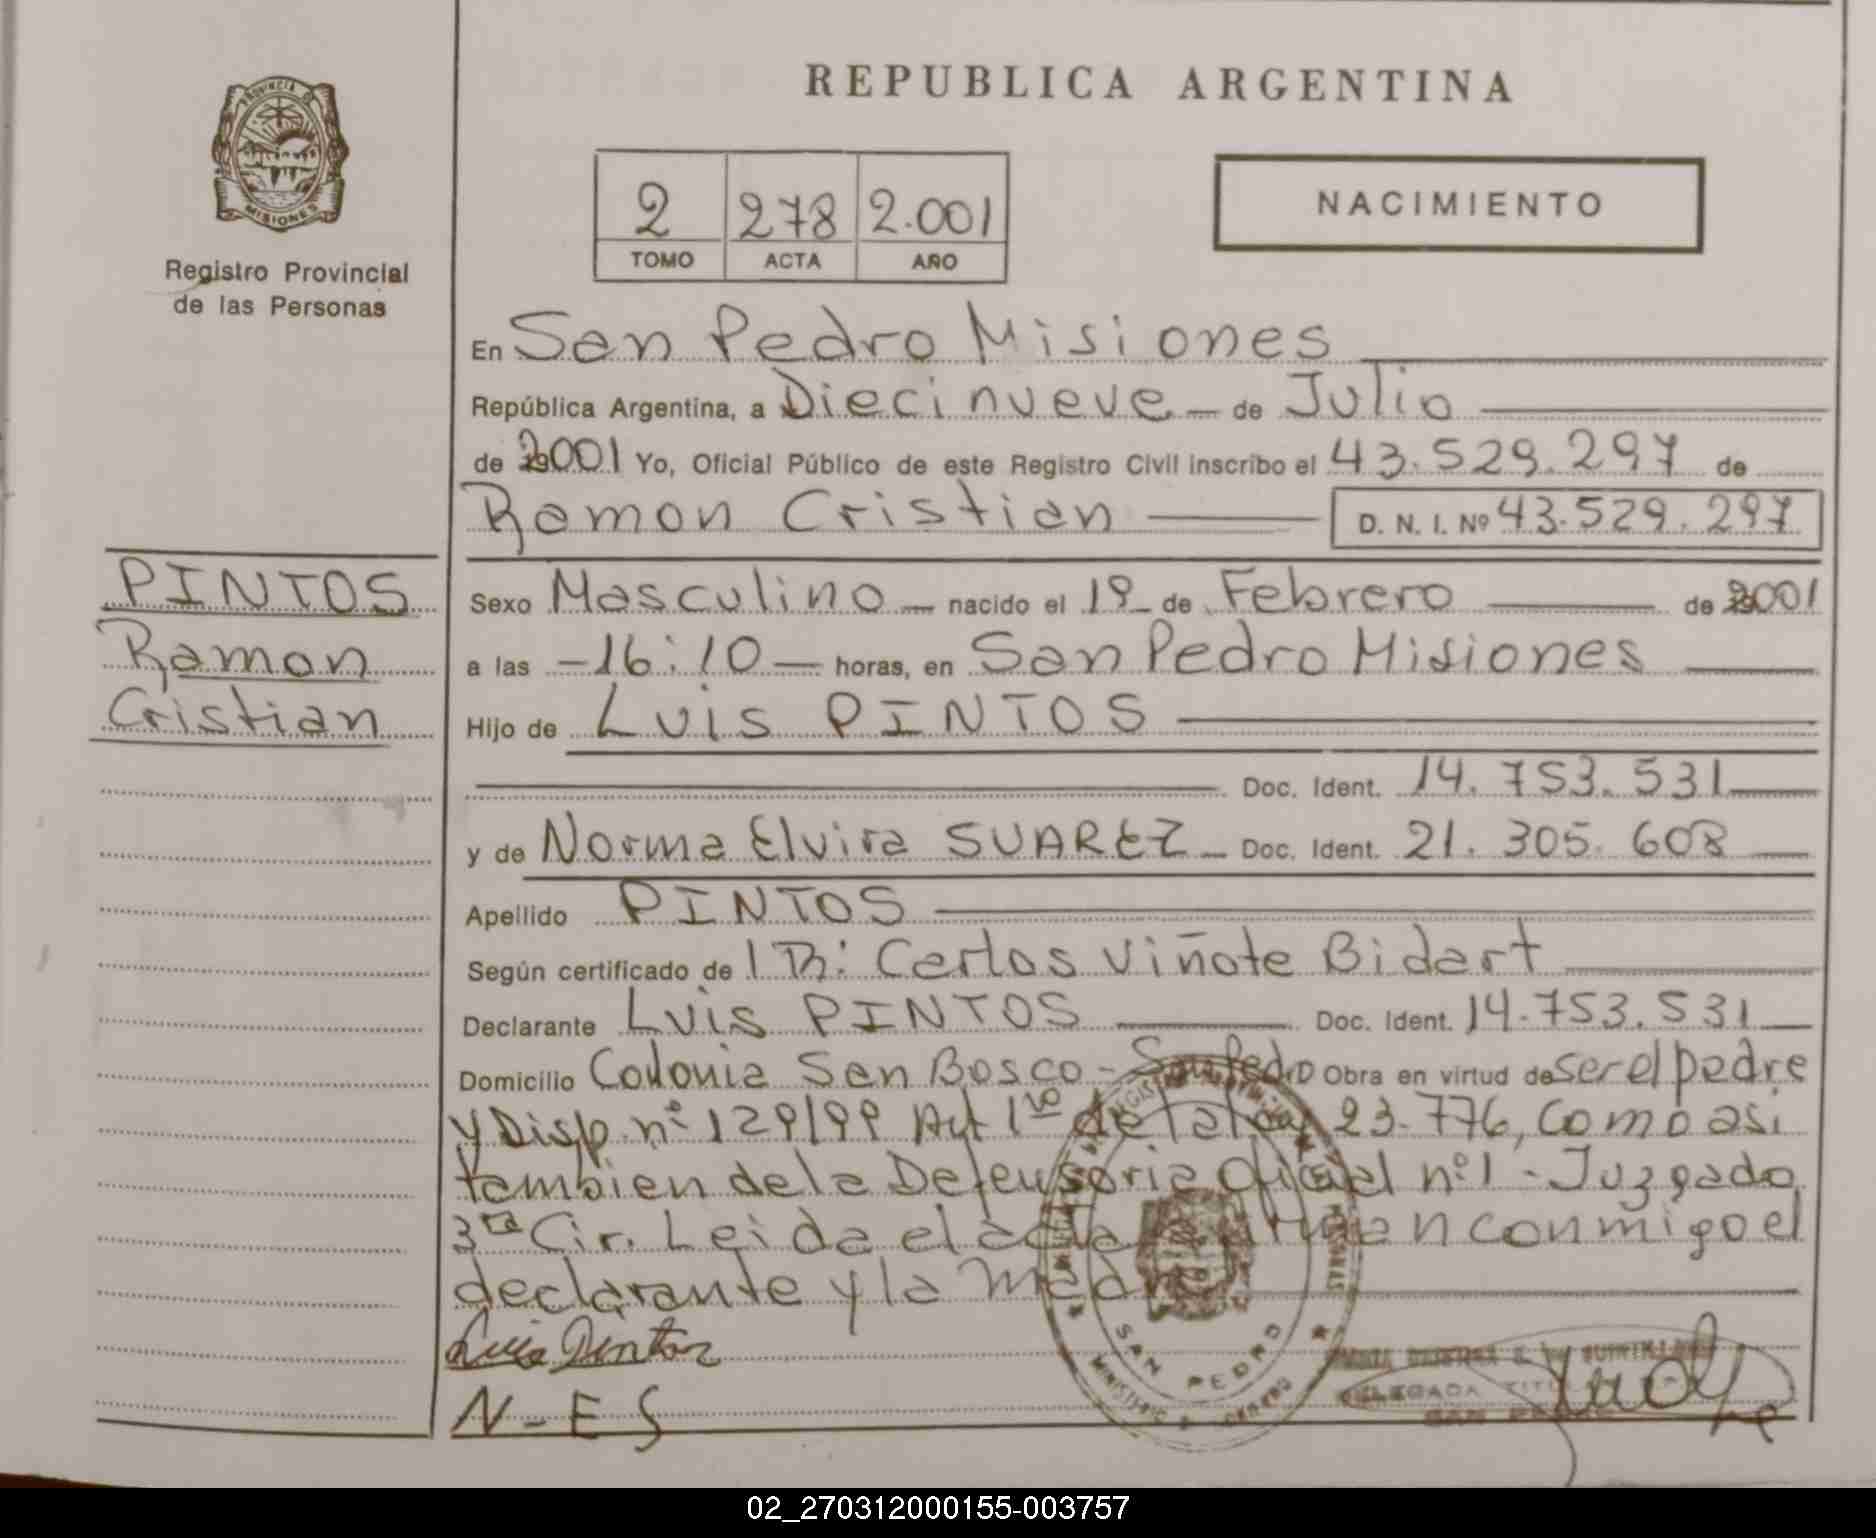 REPUBLICA ARGENTINA
PROVINCIA DE
MISIONES
Registro Provincial
de las Personas
2 278 2.001
TOMO ACTA AÑO
NACIMIENTO
En San Pedro Misiones
República Argentina, a Diecinueve de Julio
de 2001 Yo, Oficial Público de este Registro Civil inscribo el 43.529.297 de
Ramon Cristian D. N. I. Nº 43.529.297
PINTOS
Ramon
Cristian
Sexo Masculino nacido el 19 de Febrero de 2001
a las -16:10- horas, en San Pedro Misiones
Hijo de Luis PINTOS
Doc. Ident. 14.753.531
y de Norma Elvira SUAREZ Doc. Ident. 21.305.608
Apellido PINTOS
Según certificado de Carlos Viñote Bidart
Declarante Luis PINTOS Doc. Ident. 14.753.531
Domicilio Colonia San Bosco - San Pedro Obra en virtud de ser el padre
y Disp. nº 129/99 Art 1ro de la ley 23.776, como asi
tambien de la Defensoria Oficial nº1 - Juzgado
3ra Cir. Leida el acta firman conmigo el
declarante y la Madre
Luis Pintos
N-ES
SAN PEDRO
DELEGADA
SAN PEDRO
02_270312000155-003757